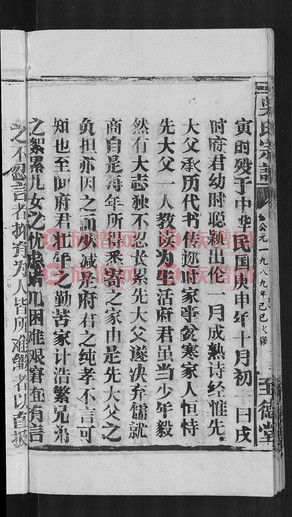 吴氏宗谱
公元一九八九年己巳火
至德堂
寅时殁于中华民国庚申年十月初一日戌
时府君幼时聪颖出伦一月成熟诗经惟先
大父承历代书传妳府家事贫寒家人恒恃
先大父一人教读为生活府君虽当少年毅
然有大志独不忍老累先大父遂决弃儒就
商自是每年所得悉界之家由是先大父之
负担亦因之而减府君之纯孝不言可
知也至同府君在外之勤苦家计浩繁兄弟
之絮累儿女之忧患几困难艰窘直有言
之不忍言者抑有为人皆所难能者以直接